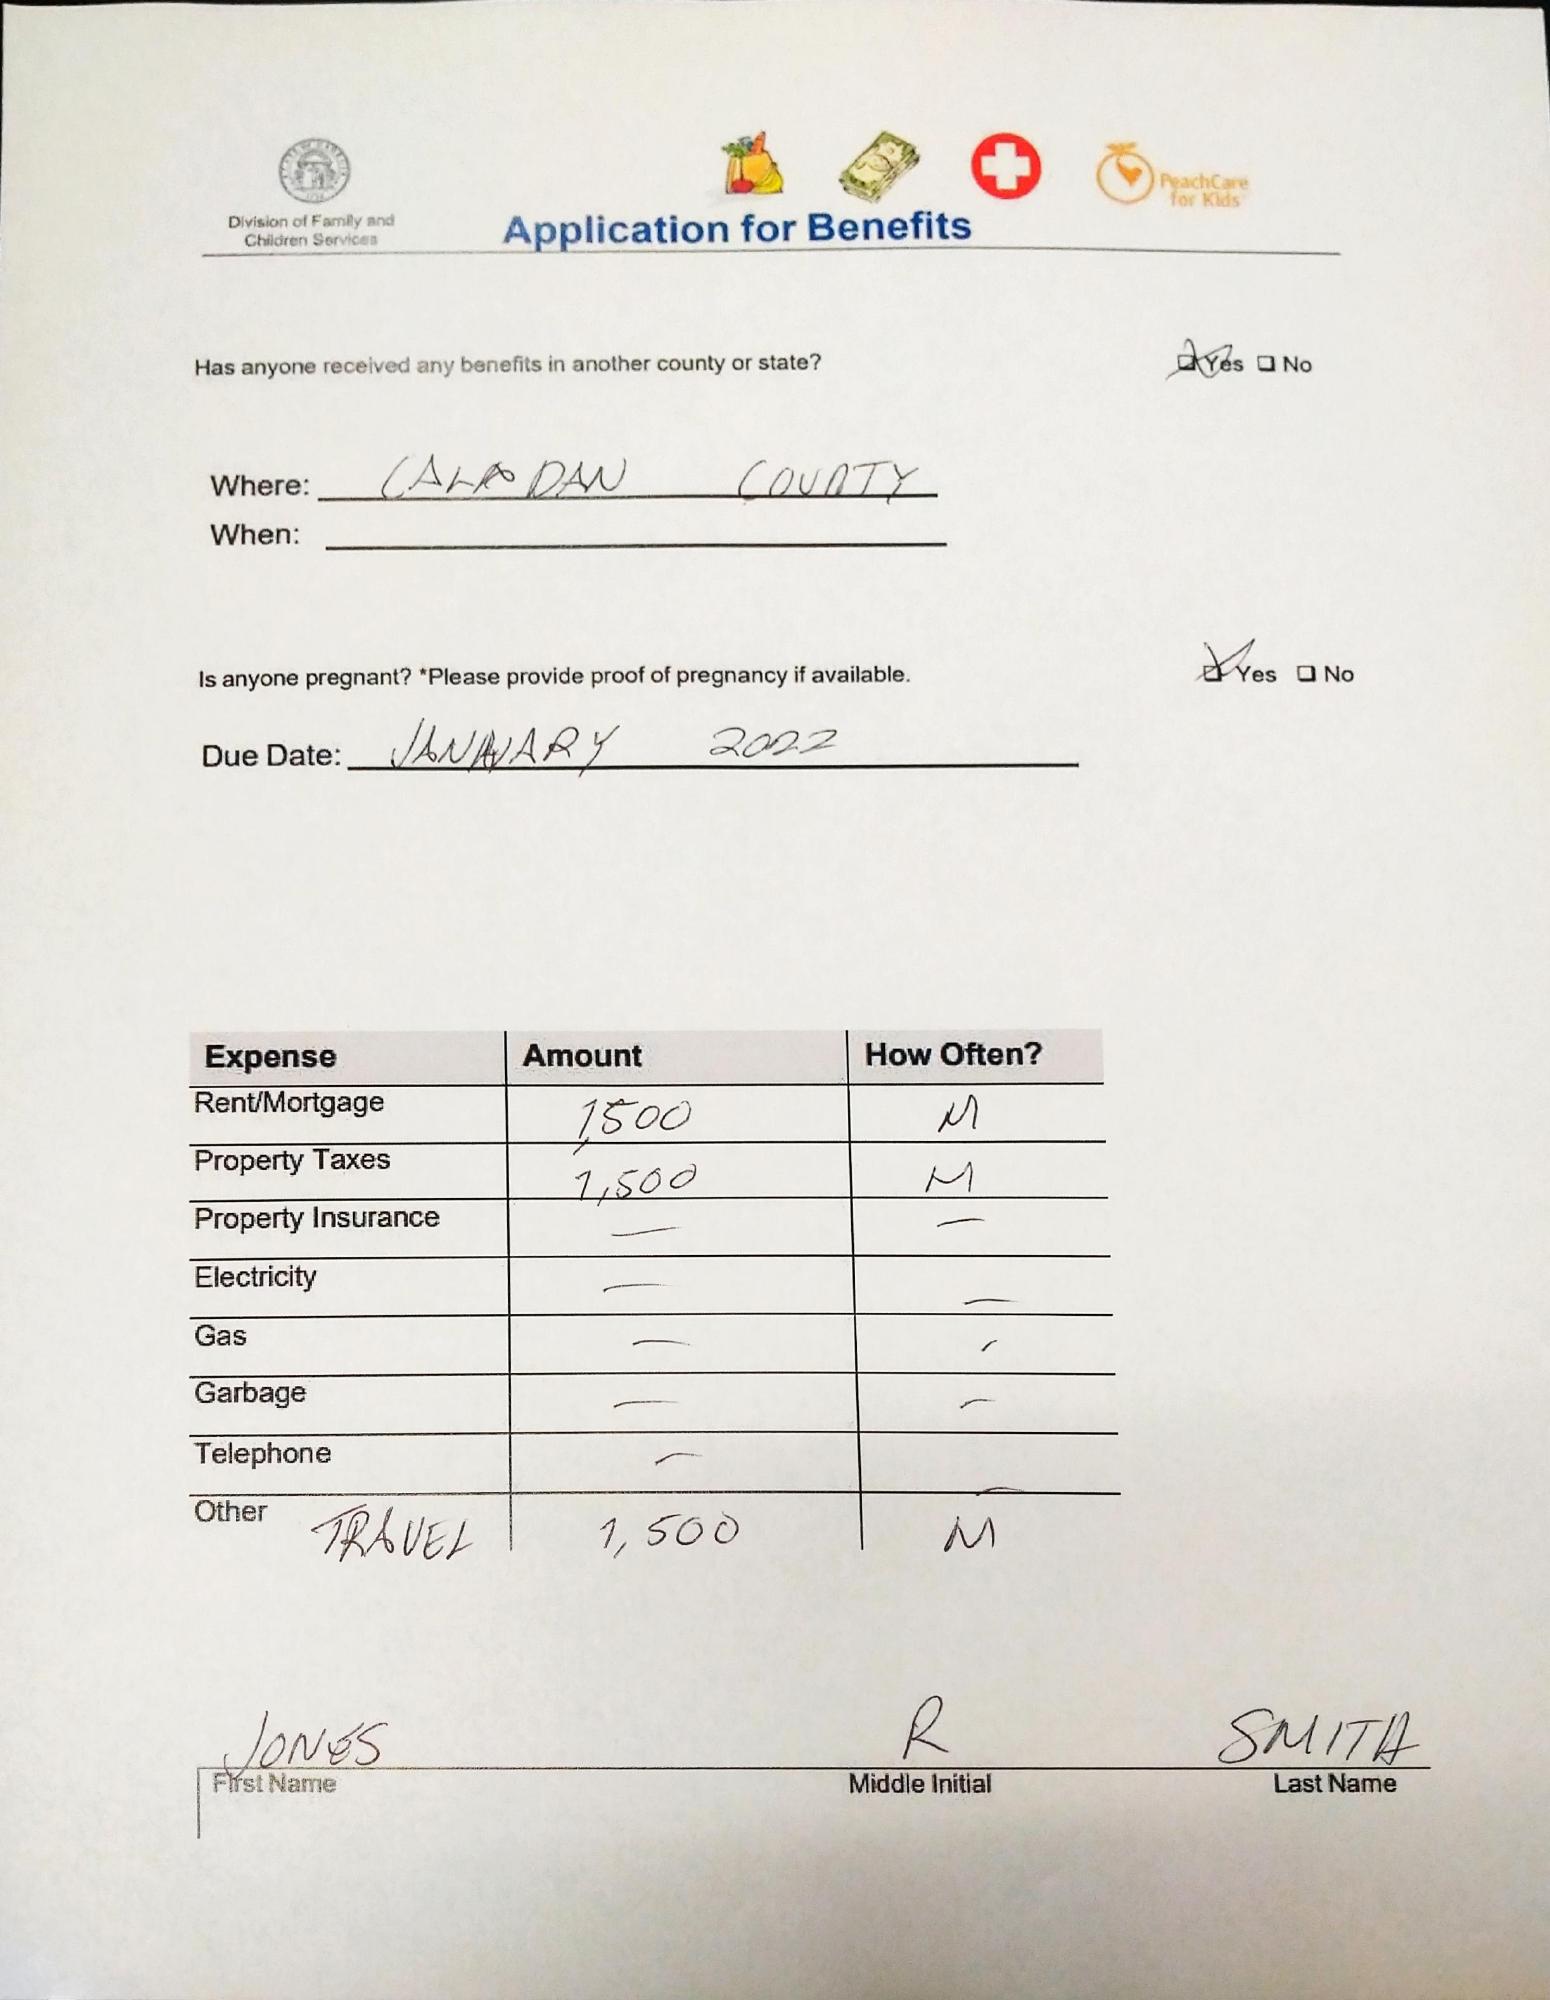 Division of Family and
Children Services
PeachCare
for Kids
Application for Benefits
Has anyone received any benefits in another county or state? ☒ Yes ☐ No
Where: CALADAN COUNTY
When:
Is anyone pregnant? *Please provide proof of pregnancy if available. ☒ Yes ☐ No
Due Date: JANUARY 2022
Expense Amount How Often?
Rent/Mortgage 1,500 M
Property Taxes 1,500 M
Property Insurance — —
Electricity — —
Gas — —
Garbage — —
Telephone — —
Other TRAVEL 1,500 M
JONES R SMITH
First Name Middle Initial Last Name